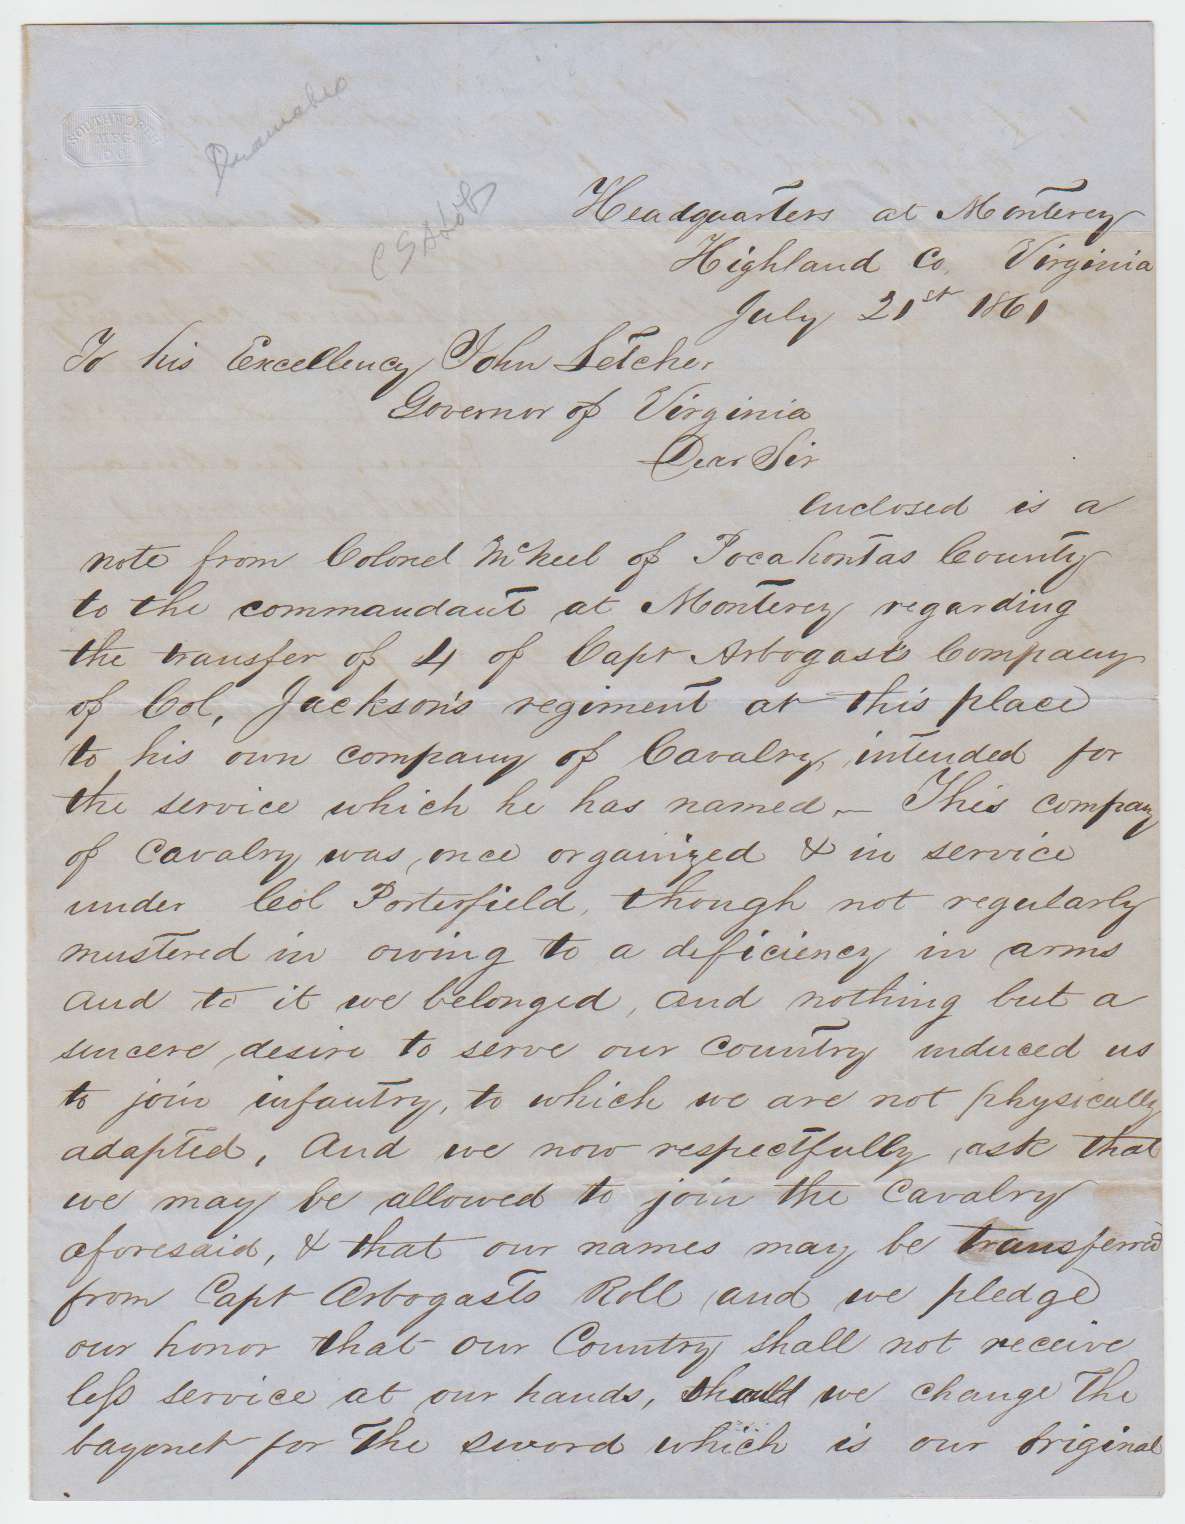 SOUTHWORTH
MFG
CO
CSA
Headquarters at Monterey
Highland Co, Virginia
July 21st 1861
To his Excellency John Letcher
Governor of Virginia
Dear Sir
enclosed is a
note from Colonel McNeel of Pocahontas County
to the commandant at Monterey regarding
the transfer of 4 of Capt Arbogasts Company
of Col, Jackson's regiment at this place
to his own company of Cavalry, intended for
the service which he has named. — This company
of Cavalry was once organized & in service
under Col Porterfield, though not regularly
mustered in owing to a deficiency in arms
and to it we belonged, and nothing but a
sincere desire to serve our Country induced us
to join infantry, to which we are not physically
adapted, And we now respectfully ask that
we may be allowed to join the Cavalry
aforesaid, & that our names may be transferred
from Capt Arbogasts Roll and we pledge
our honor that our Country shall not receive
less service at our hands, should we change The
bayonet for The sword which is our original